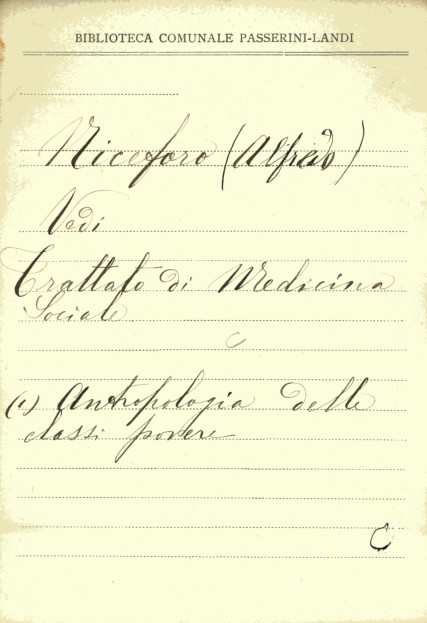 BIBLIOTECA COMUNALE PASSERINI-LANDI
Niceforo (Alfredo)
Vedi
Trattato di Medicina
Sociale
C
(1) Antropologia delle
classi povere
C